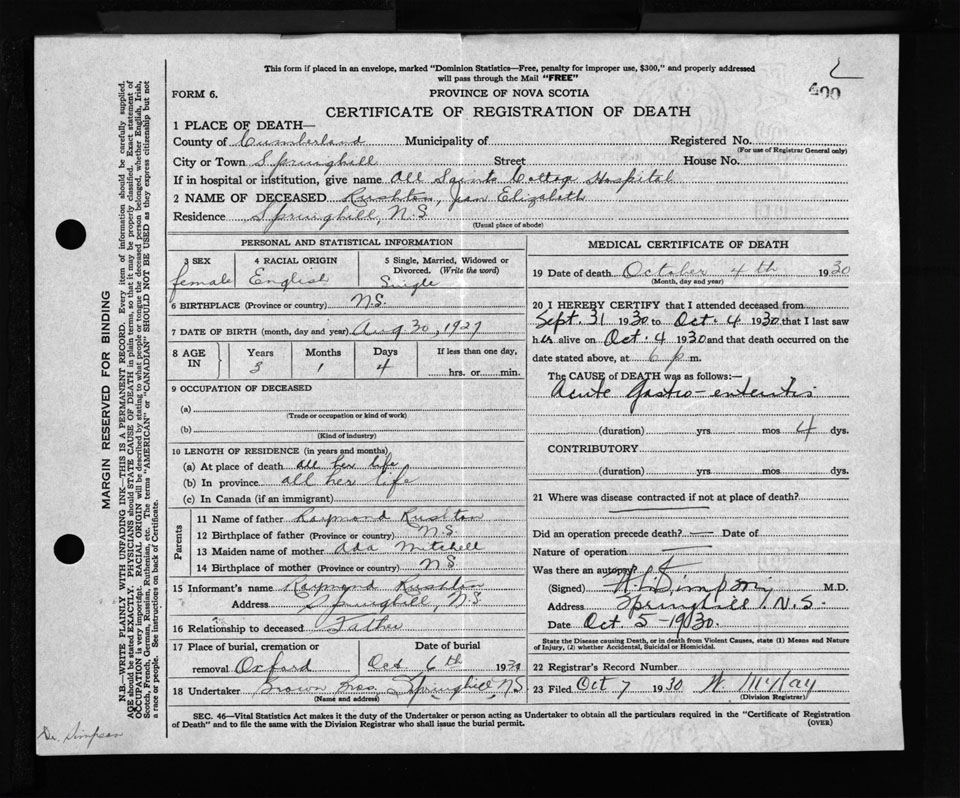 This form if placed in an envelope, marked "Dominion Statistics—Free, penalty for improper use, $300," and properly addressed
will pass through the Mail "FREE"
FORM 6.
PROVINCE OF NOVA SCOTIA
CERTIFICATE OF REGISTRATION OF DEATH
1 PLACE OF DEATH—
County of Cumberland Municipality of Registered No.
(For use of Registrar General only)
City or Town Springhill Street House No.
If in hospital or institution, give name All Saints Cottage Hospital
2 NAME OF DECEASED Rushton, Jean Elizabeth
Residence Springhill, N.S.
(Usual place of abode)
PERSONAL AND STATISTICAL INFORMATION
3 SEX 4 RACIAL ORIGIN 5 Single, Married, Widowed or Divorced. (Write the word)
female English Single
6 BIRTHPLACE (Province or country) N.S.
7 DATE OF BIRTH (month, day and year) Aug 30, 1927
8 AGE IN Years Months Days If less than one day,
3 1 4 hrs. or min.
9 OCCUPATION OF DECEASED
(a)
(Trade or occupation or kind of work)
(b)
(Kind of industry)
10 LENGTH OF RESIDENCE (in years and months)
(a) At place of death all her life
(b) In province all her life
(c) In Canada (if an immigrant)
Parents
11 Name of father Raymond Rushton
12 Birthplace of father (Province or country) N.S.
13 Maiden name of mother Ada Mitchell
14 Birthplace of mother (Province or country) N.S.
15 Informant's name Raymond Rushton
Address Springhill, N.S.
16 Relationship to deceased Father
17 Place of burial, cremation or Date of burial
removal Oxford Oct 6th 1930
18 Undertaker Brown Bros. Springhill, N.S.
(Name and address)
MEDICAL CERTIFICATE OF DEATH
19 Date of death October 4th 1930
(Month, day and year)
20 I HEREBY CERTIFY that I attended deceased from
Sept. 31 1930 to Oct. 4 1930 that I last saw
her alive on Oct. 4 1930 and that death occurred on the
date stated above, at 6 p m.
The CAUSE of DEATH was as follows:—
Acute Gastro-enteritis
(duration) yrs mos 4 dys.
CONTRIBUTORY
(duration) yrs mos dys.
21 Where was disease contracted if not at place of death?
Did an operation precede death? — Date of
Nature of operation —
Was there an autopsy?
(Signed) Simpson M.D.
Address Springhill, N.S.
Date Oct. 5 - 1930.
State the Disease causing Death, or in death from Violent Causes, state (1) Means and Nature
of Injury, (2) whether Accidental, Suicidal or Homicidal.
22 Registrar's Record Number
23 Filed Oct 7 1930 W. McKay
(Division Registrar)
SEC. 46—Vital Statistics Act makes it the duty of the Undertaker or person acting as Undertaker to obtain all the particulars required in the "Certificate of Registration
of Death" and to file the same with the Division Registrar who shall issue the burial permit. (OVER)
MARGIN RESERVED FOR BINDING
N.B.—WRITE PLAINLY WITH UNFADING INK—THIS IS A PERMANENT RECORD. Every item of information should be carefully supplied.
AGE should be stated EXACTLY. PHYSICIANS should STATE CAUSE OF DEATH in plain terms, so that it may be properly classified. Exact statement of
OCCUPATION is very important. RACIAL ORIGIN will be described by stating to what people or tongue the deceased person belonged, whether English, Irish,
Scotch, French, German, Russian, Ruthenian, etc. The terms "AMERICAN" or "CANADIAN" SHOULD NOT BE USED as they express citizenship but not
a race or people. See instructions on back of Certificate.
Dr. Simpson